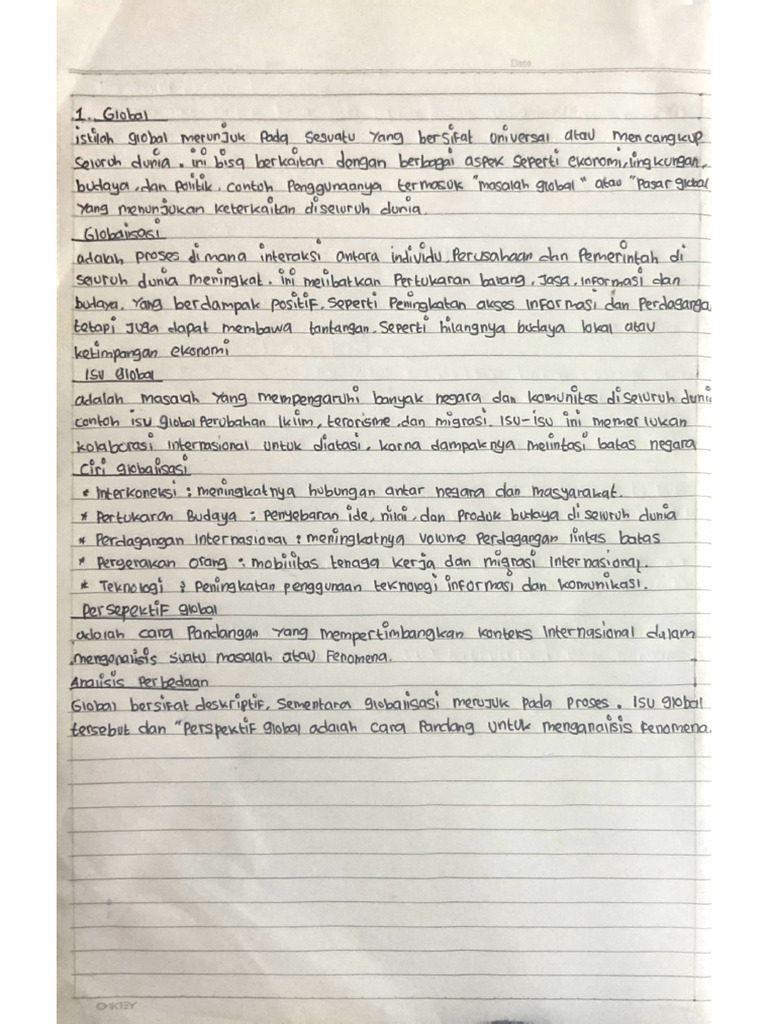 Date
1. Global
istilah global merunjuk pada sesuatu yang bersifat universal atau mencangkup
seluruh dunia. ini bisa berkaitan dengan berbagai aspek seperti ekonomi, lingkungan,
budaya, dan politik, contoh penggunaanya termasuk "masalah global" atau "pasar global
yang menunjukan keterkaitan diseluruh dunia.
Globalisasi
adalah proses dimana interaksi antara individu, perusahaan dan pemerintah di
seluruh dunia meningkat. ini melibatkan pertukaran barang, jasa, informasi dan
budaya. yang berdampak positif, seperti peningkatan akses informasi dan perdaganga
tetapi juga dapat membawa tantangan. seperti hilangnya budaya lokal atau
ketimpangan ekonomi
Isu global
adalah masalah yang mempengaruhi banyak negara dan komunitas diseluruh duni
contoh isu global perubahan iklim, terorisme, dan migrasi. Isu-isu ini memerlukan
kolaborasi internasional untuk diatasi, karna dampaknya melintasi batas negara
Ciri globalisasi
* Interkoneksi : meningkatnya hubungan antar negara dan masyarakat.
* Pertukaran Budaya : Penyebaran ide, nilai, dan produk budaya di seluruh dunia
* Perdagangan Internasional : meningkatnya volume perdagangan lintas batas
* Pergerakan orang : mobilitas tenaga kerja dan migrasi internasional.
* Teknologi : Peningkatan penggunaan teknologi informasi dan komunikasi.
Persepektif global
adalah cara pandangan yang mempertimbangkan konteks internasional dalam
menganalisis suatu masalah atau fenomena.
Analisis perbedaan
Global bersifat deskriptif, sementara globalisasi merujuk pada proses. Isu global
tersebut dan "perspektif global adalah cara pandang untuk menganalisis fenomena.
OKEY